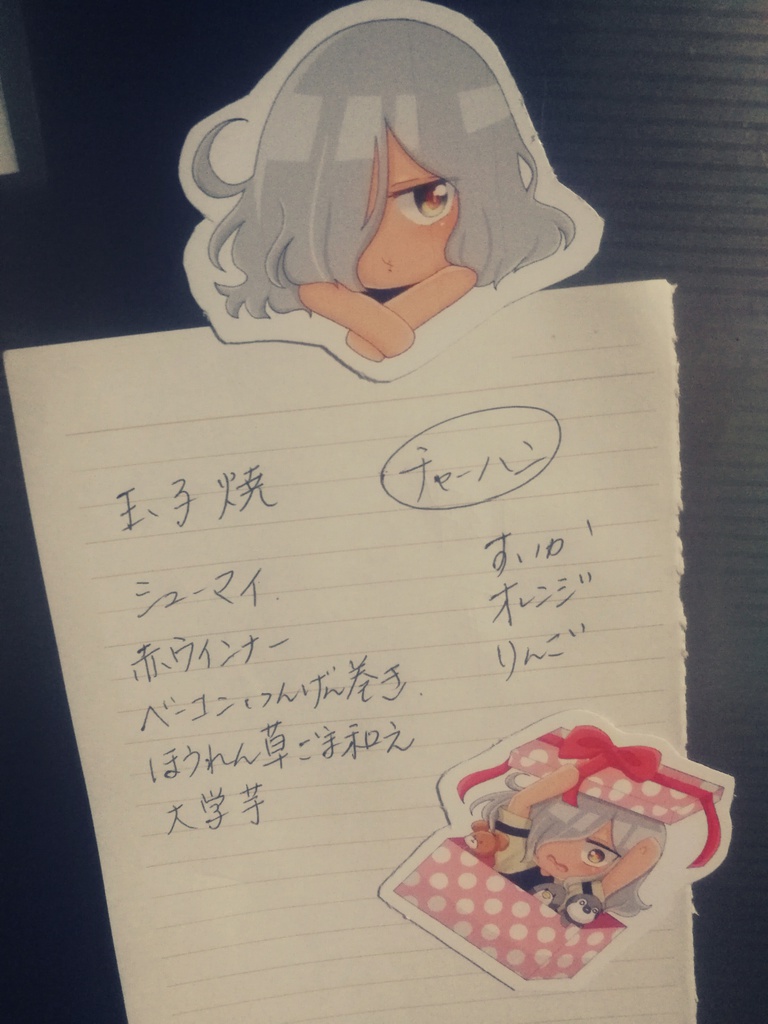 玉子焼
シューマイ.
赤ウインナー
ベーコンいんげん巻き.
ほうれん草ごま和え
大学芋
チャーハン
すいか
オレンジ
りんご